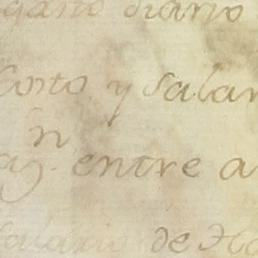 gario diario
Costo y Salar
n
entre a
Salario de Ha